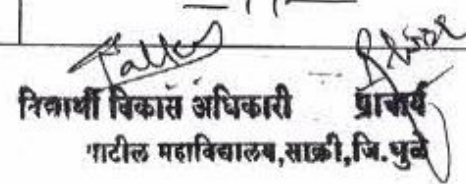 विद्यार्थी विकास अधिकारी प्राचार्य
पाटील महाविद्यालय,साक्री,जि.धुळे